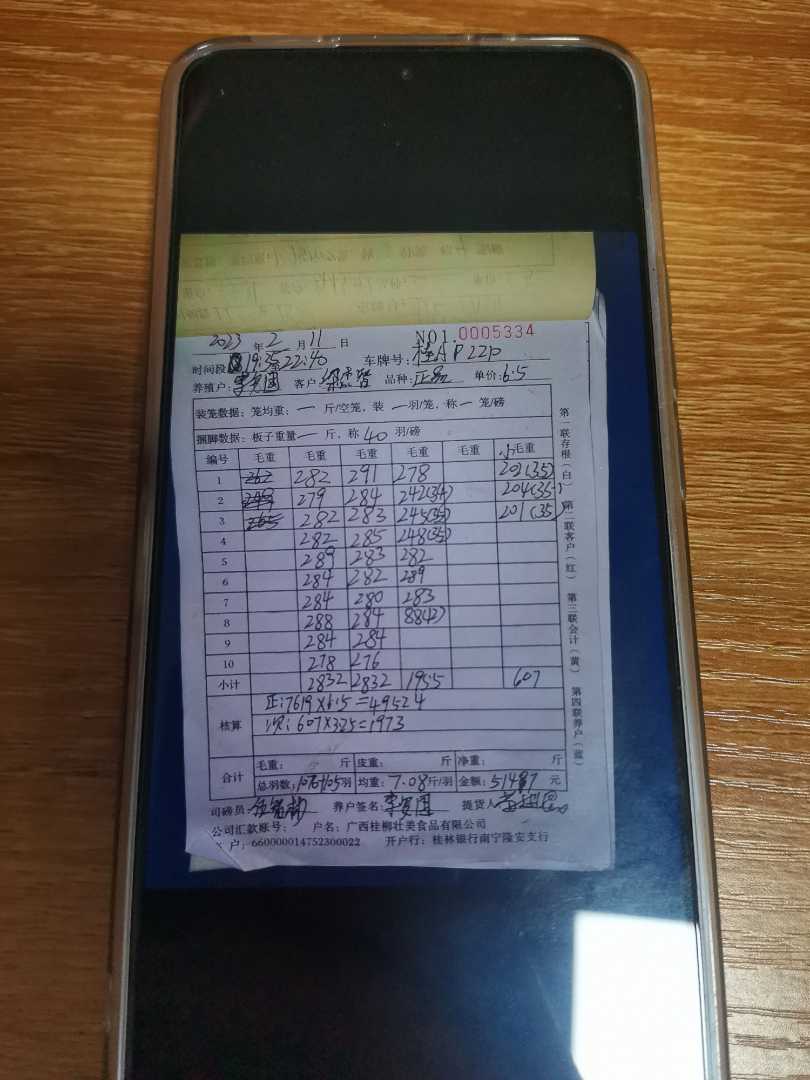 2023 年 2 月 11 日 NO1.0005334
时间段 19:35 22:40 车牌号: 桂AP22P
养殖户: 李 国 客户: 品种: 正 单价: 6.5
装笼数据: 笼均重: 一 斤/空笼, 装 一 羽/笼, 称 一 笼/磅
捆脚数据: 板子重量 一 斤, 称 40 羽/磅
编号 毛重 毛重 毛重 毛重 毛重 小毛重
1 262 282 291 278 202(35)
2 279 284 242(34) 204(35)
3 265 282 283 245(35) 201(35)
4 282 285 248(35)
5 289 283 282
6 284 282 289
7 284 280 283
8 288 284 88(12)
9 284 284
10 278 276
小计 2832 2832 1955 607
核算 正:7619×6.5=49524
次:607×3.25=1973
合计 毛重: 斤 皮重: 斤 净重: 斤
总羽数: 1076+105羽 均重: 7.08斤/羽 金额: 51497 元
司磅员: 养户签名: 李 国 提货人
公司汇款账号: 户名: 广西桂柳壮美食品有限公司
户: 660000014752300022 开户行: 桂林银行南宁隆安支行
第一联存根(白) 第二联客户(红) 第三联会计(黄) 第四联养户(蓝)